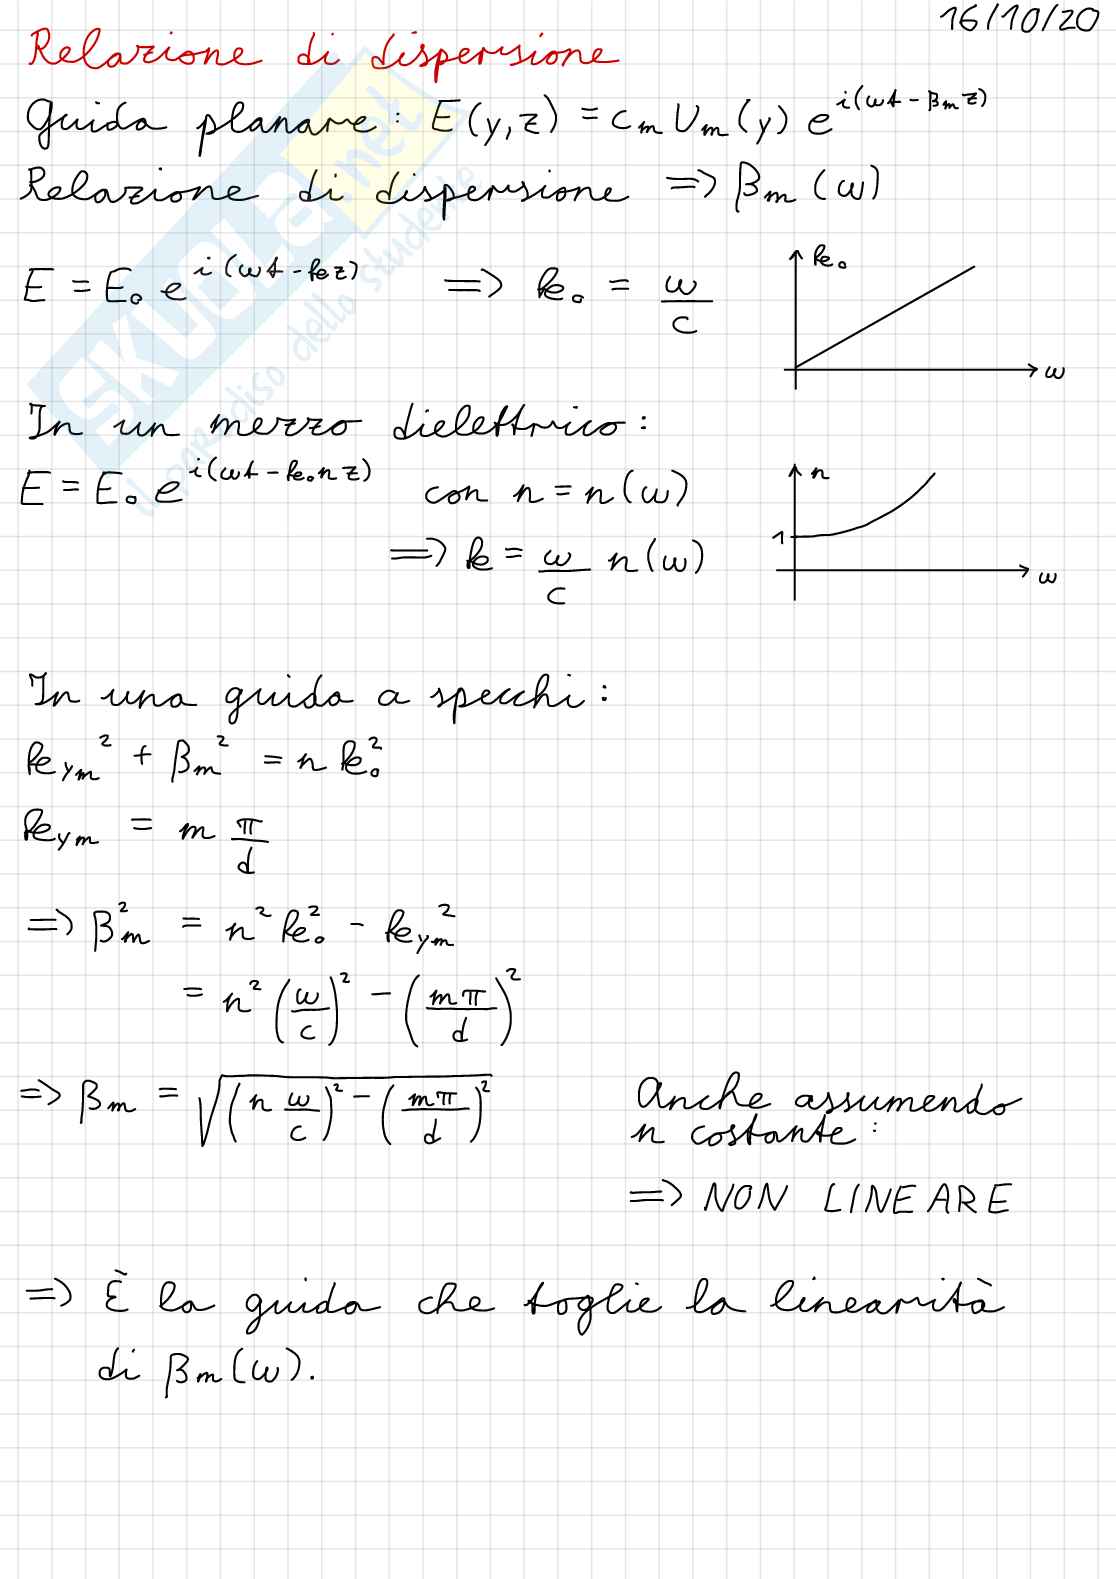 16/10/20
Relazione di dispersione
Guida planare: E(y,z) = c_m U_m(y) e^{i(ωt - β_m z)}
Relazione di dispersione => β_m(ω)
E = E₀ e^{i(ωt - kz)} => k₀ = ω/c
k₀
ω
In un mezzo dielettrico:
E = E₀ e^{i(ωt - k₀nz)} con n = n(ω)
=> k = ω/c n(ω)
n
1
ω
In una guida a specchi:
k_ym² + β_m² = n k₀²
k_ym = m π/d
=> β_m² = n² k₀² - k_ym²
= n² (ω/c)² - (mπ/d)²
=> β_m = √((n ω/c)² - (mπ/d)²)
Anche assumendo
n costante:
=> NON LINEARE
=> È la guida che toglie la linearità
di β_m(ω).
SKUOLA.net
il paradiso dello studente